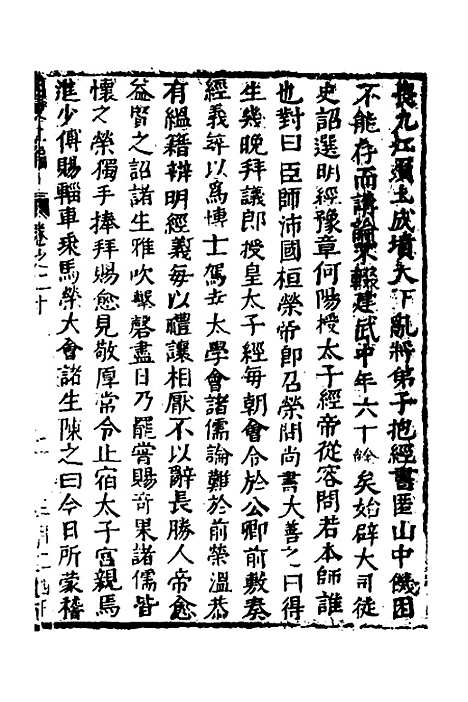 喪九江負土成墳天下亂將弟子抱經書匿山中饑困
不能存而講論不輟建武中年六十餘矣始辟大司徒
史詔選明經豫章何陽授太子經帝從容問若本師誰
也對曰臣師沛國桓榮帝即召榮問尚書大善之曰得
生幾晚拜議郎授皇太子經每朝會令於公卿前敷奏
經義尋以爲博士駕幸太學會諸儒論難於前榮溫恭
有縕籍辨明經義每以禮讓相厭不以辭長勝人帝愈
益賢之詔諸生雅吹擊磬盡日乃罷嘗賜奇果諸儒皆
懷之榮獨手捧拜賜愈見敬厚常令止宿太子宮親爲
進少傅賜輜車乘馬榮大會諸生陳之曰今日所蒙稽